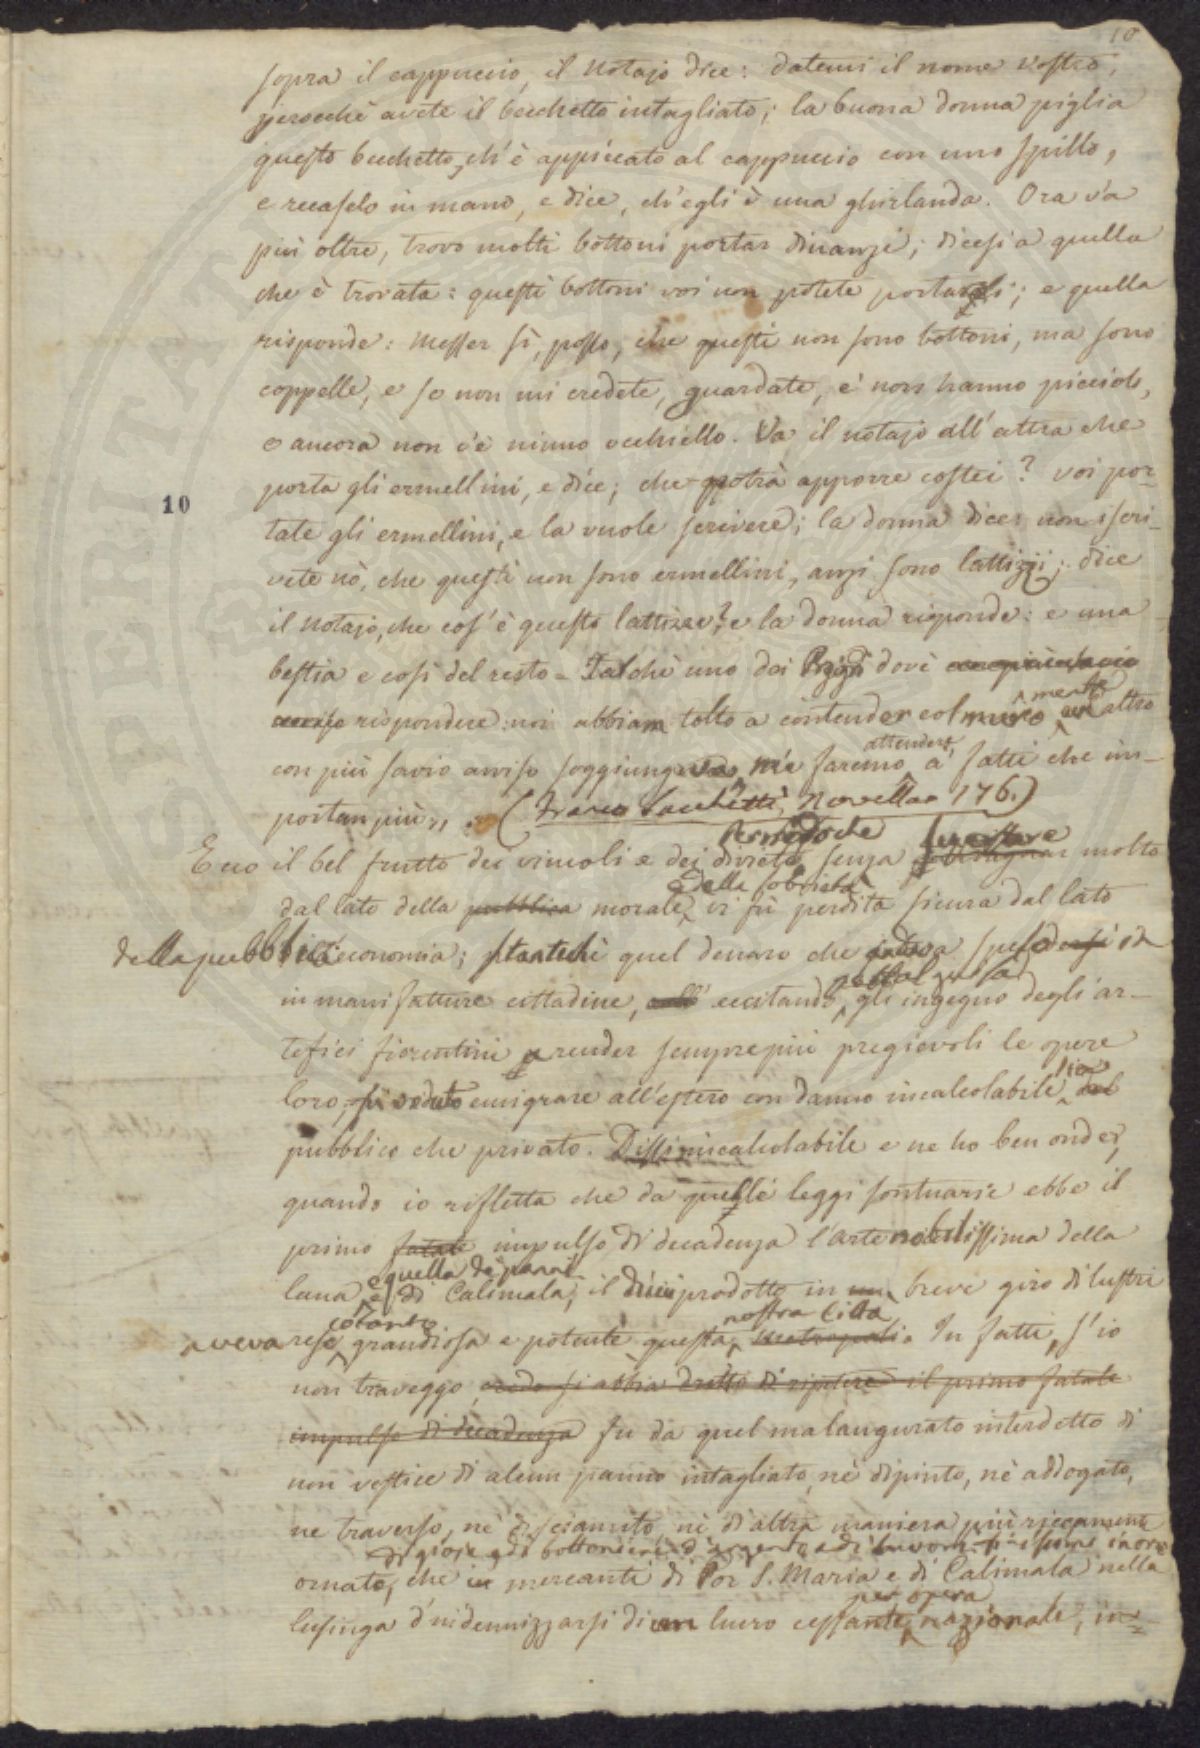 10
sopra il cappuccio, il Notajo dice: datemi il nome vostro,
perocchè avete il becchetto intagliato; la buona donna piglia
questo becchetto, ch'è appiccato al cappuccio con uno spillo,
e recaselo in mano, e dice, ch'egli è una ghirlanda. Ora va
più oltre, trovo molti bottoni portar dinanzi; dicesi a quella
che è trovata: questi bottoni voi non potete portargli; e quella
risponde: Messer sì, posso, che questi non sono bottoni, ma sono
coppelle, e se non mi credete, guardate, e' non hanno picciolo,
e ancora non c'è niuno occhiello. Va il notajo all'altra che
porta gli ermellini, e dice; che potrà apporre costei? voi por-
10
tate gli ermellini, e la vuole scrivere; la donna dice: non iscri-
vete nò, che questi non sono ermellini, anzi sono lattizzi; dice
il Notajo, che cos'è questo lattizzo? e la donna risponde: è una
bestia e così del resto = Talchè uno dei dovè
rispondere: noi abbiam tolto a contender col muro, altro
mente
con più savio avviso soggiungendo, me' faremo a' fatti che im-
attendere
portan più,, . (Franco Sacchetti, Novella 176.)
Ecco il bel frutto dei vincoli e dei divieti, senza molto
dal lato della pubblica morale, vi fù perdita sicura dal lato
della sobrietà
della pubblica economia; stantechè quel denaro che spese in
in manifatture cittadine, eccitando, gli ingegno degli ar-
tefici fiorentini a render semprepiù pregievoli le opere
loro, si vedeto emigrare all'estero con danno incalcolabile,
sia
pubblico che privato. Dissi incalcolabile e ne ho ben onde,
quando io rifletta che da quelle leggi sontuarie ebbe il
primo fatale impulso di decadenza l'Arte nobilissima della
lana, e di Calimala; il prodotto in breve giro di lustri
e quella de' panni
aveva rese, grandiosa e potente questa, metropoli. In fatti, s'io
cotanto nostra Città
non traveggo, credo si abbia dritto di ripetere il primo fatale
impulso di decadenza fu da quel malaugurato interdetto di
non vestire di alcun panno intagliato, nè dipinto, nè addogato,
ne traverso, nè di sciamito, nè di altra maniera più riccamente
di gioie e di bottoniere d'argento e di
ornato, che i mercanti di Por S. Maria e di Calimala nella
lusinga d'indennizzarsi di un lucro cessante, nazionale, in=
per opera